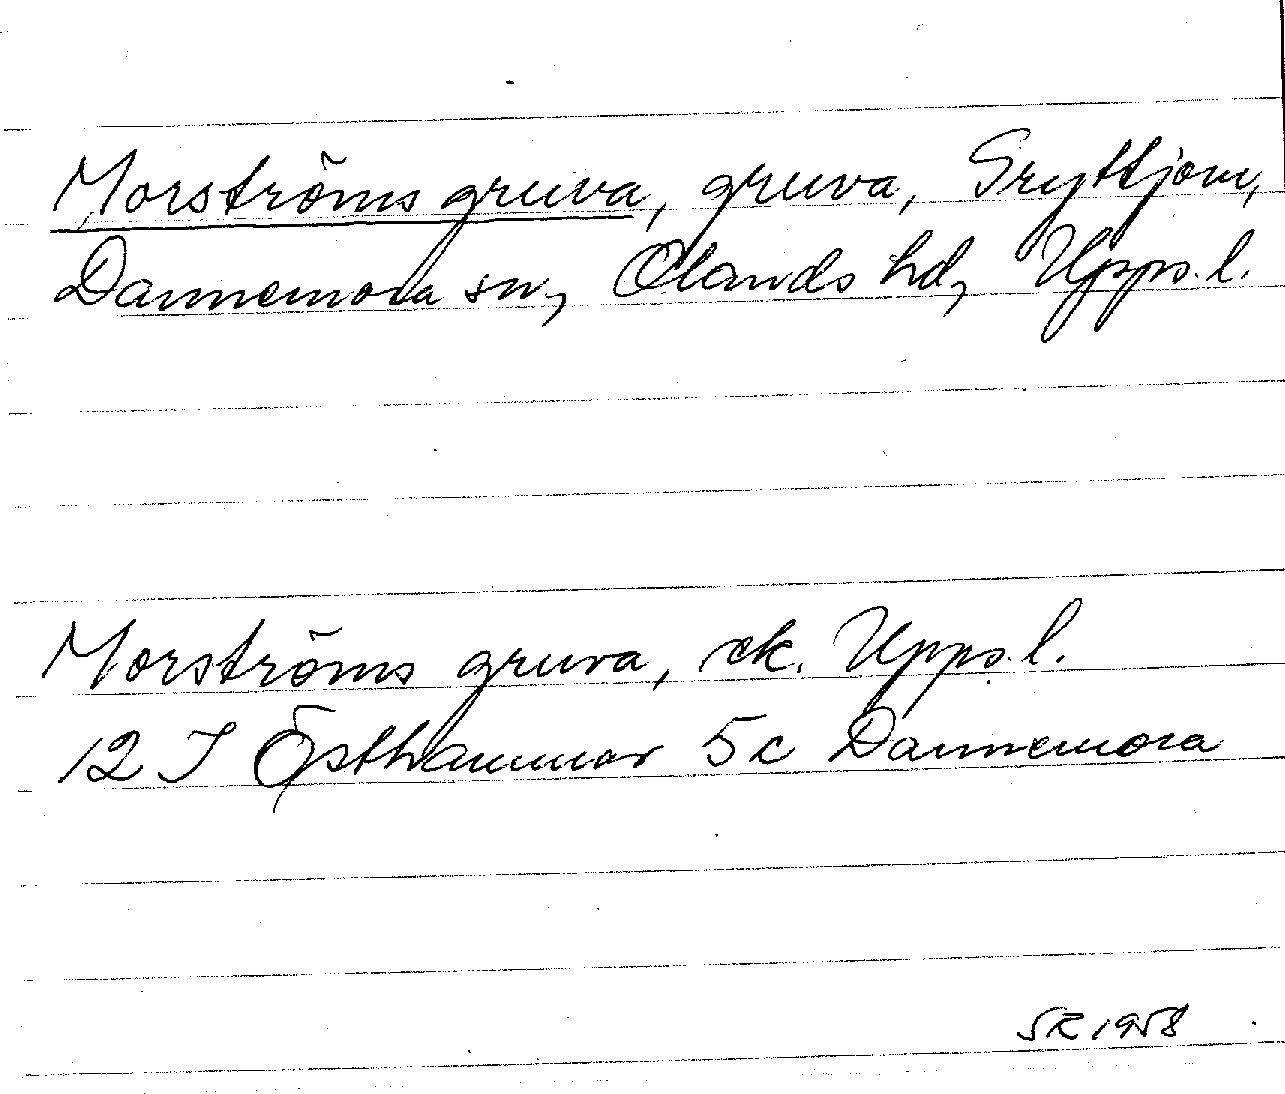 Morströms gruva, gruva, Gryttjom,
Dannemora sn, Olands hd, Upps. l.
Morströms gruva, ek. Upps. l.
12 I Östhammar 5c Dannemora
SR 1958